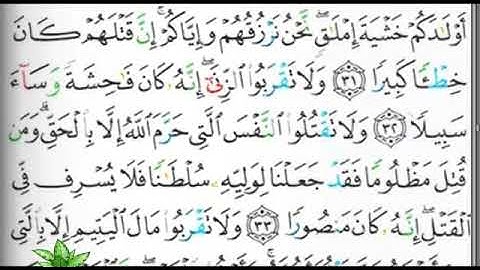 أَوْلَٰدَكُمْ خَشْيَةَ إِمْلَٰقٍ ۖ نَّحْنُ نَرْزُقُهُمْ وَإِيَّاكُمْ ۚ إِنَّ قَتْلَهُمْ كَانَ
خِطْـًٔا كَبِيرًا ٣١ وَلَا تَقْرَبُوا۟ ٱلزِّنَىٰٓ ۖ إِنَّهُۥ كَانَ فَٰحِشَةً وَسَآءَ
سَبِيلًا ٣٢ وَلَا تَقْتُلُوا۟ ٱلنَّفْسَ ٱلَّتِى حَرَّمَ ٱللَّهُ إِلَّا بِٱلْحَقِّ ۗ وَمَن
قُتِلَ مَظْلُومًا فَقَدْ جَعَلْنَا لِوَلِيِّهِۦ سُلْطَٰنًا فَلَا يُسْرِف فِّى
ٱلْقَتْلِ ۖ إِنَّهُۥ كَانَ مَنصُورًا ٣٣ وَلَا تَقْرَبُوا۟ مَالَ ٱلْيَتِيمِ إِلَّا بِٱلَّتِى